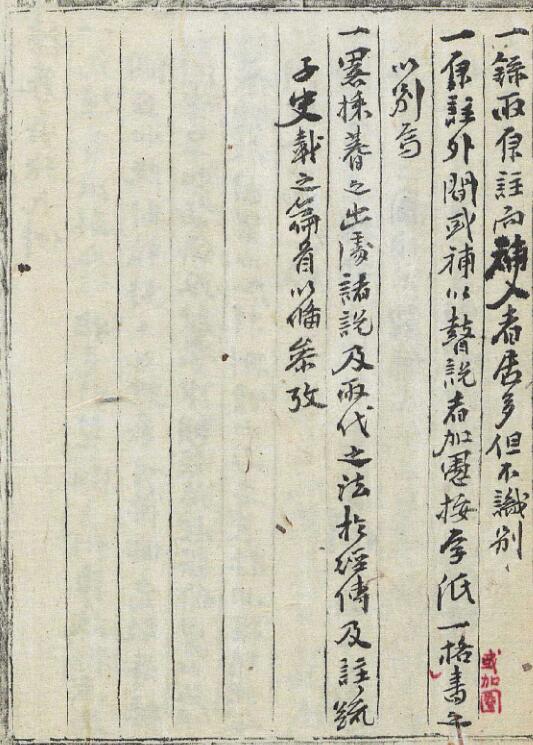 一錄兩原註而輔入者居多但不識別
或加圈
一原註外間或補以瞽說者加愚按字低一格書之
以別焉
一畧採蓍之出處諸說及兩代之法於經傳及註疏
子史載之篇首以備叅攷